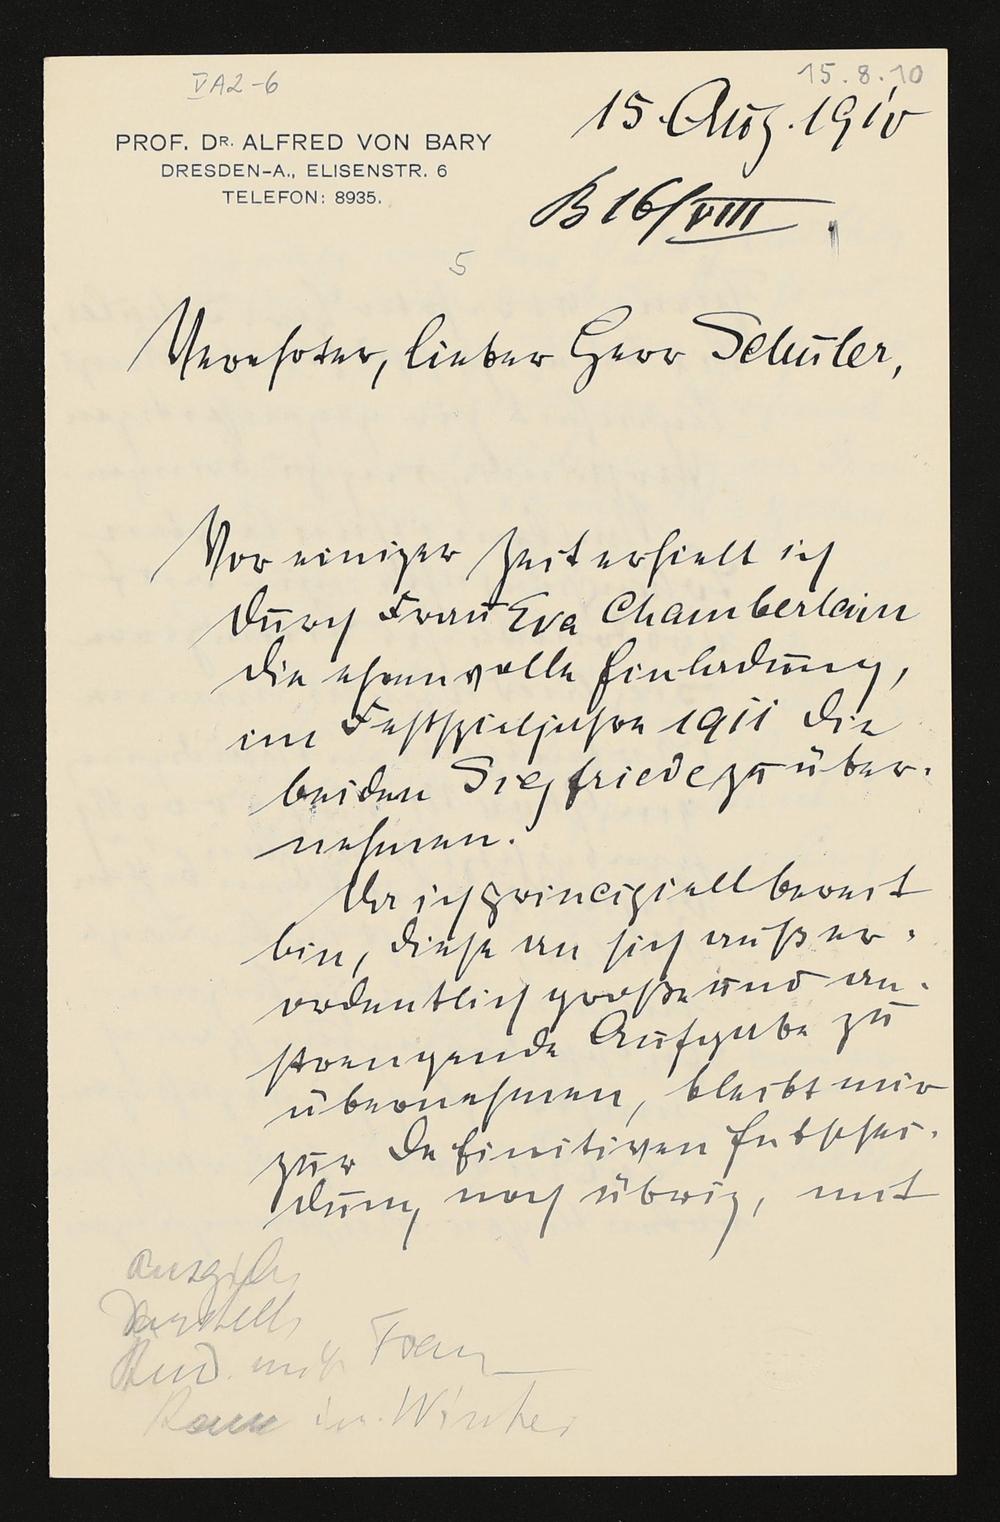 VA2-6
15.8.10
PROF. DR. ALFRED VON BARY
DRESDEN-A., ELISENSTR. 6
TELEFON: 8935.
15. Aug. 1910
B 16/VIII
5
Verehrter, lieber Herr Schuler,
Vor einiger Zeit erhielt ich
durch Frau Eva Chamberlain
die ehrenvolle Einladung,
im Festspieljahre 1911 die
beiden Siegfriede zu über-
nehmen.
Da ich principiell bereit
bin, diese an sich außer-
ordentlich große und an-
strengende Aufgabe zu
übernehmen, bleibt mir
zur definitiven Entschei-
dung noch übrig, mit
Frau
im Winter